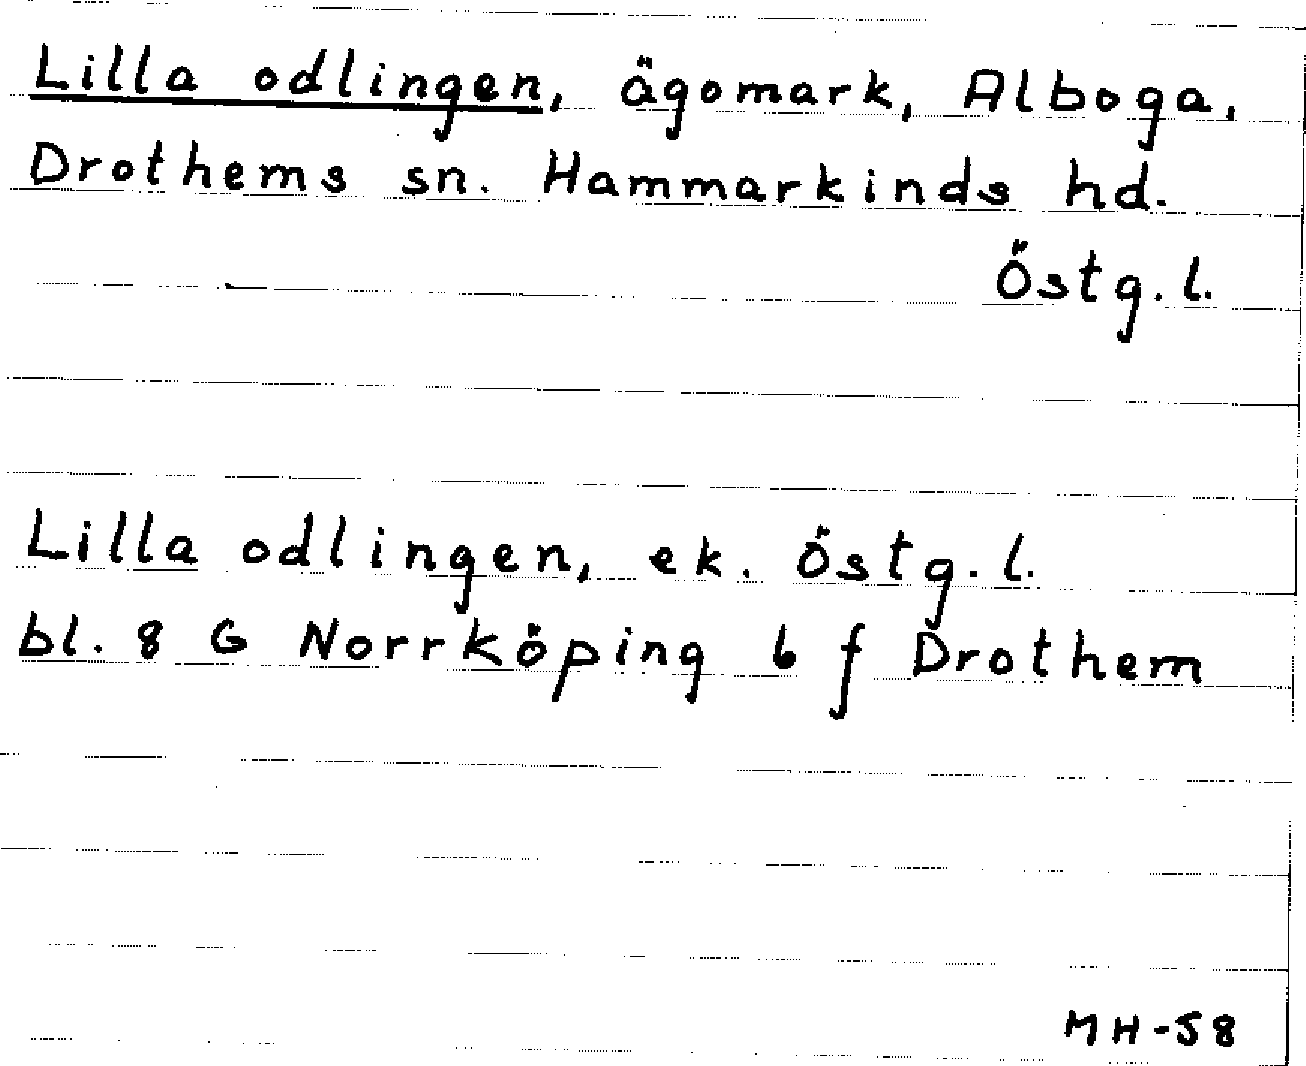 Lilla odlingen, ägomark, Alboga,
Drothems sn. Hammarkinds hd.
Östg. l.
Lilla odlingen, ek. Östg. l.
bl. 8 G Norrköping 6 f Drothem
MH-58